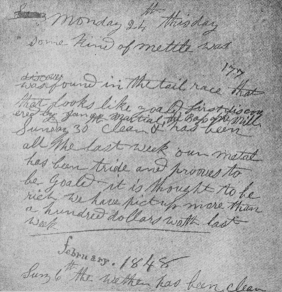 Monday 24th this day
some kind of mettle was
found in the tail race that
that looks like goald first discov
ered by James Martial, the Boss of the Mill
Sunday 30 clear & has been
all the last week our metal
has ben tride and proves to
be goald it is thought to be
rich we have pict up more than
a hundred dollars woth last
week
February. 1848
Sun 6th the wether has ben clear